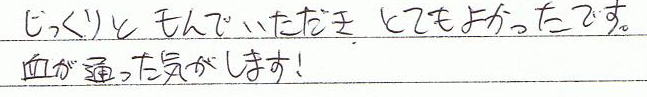 じっくりと もんでいただき とてもよかったです。
血が通った気がします!